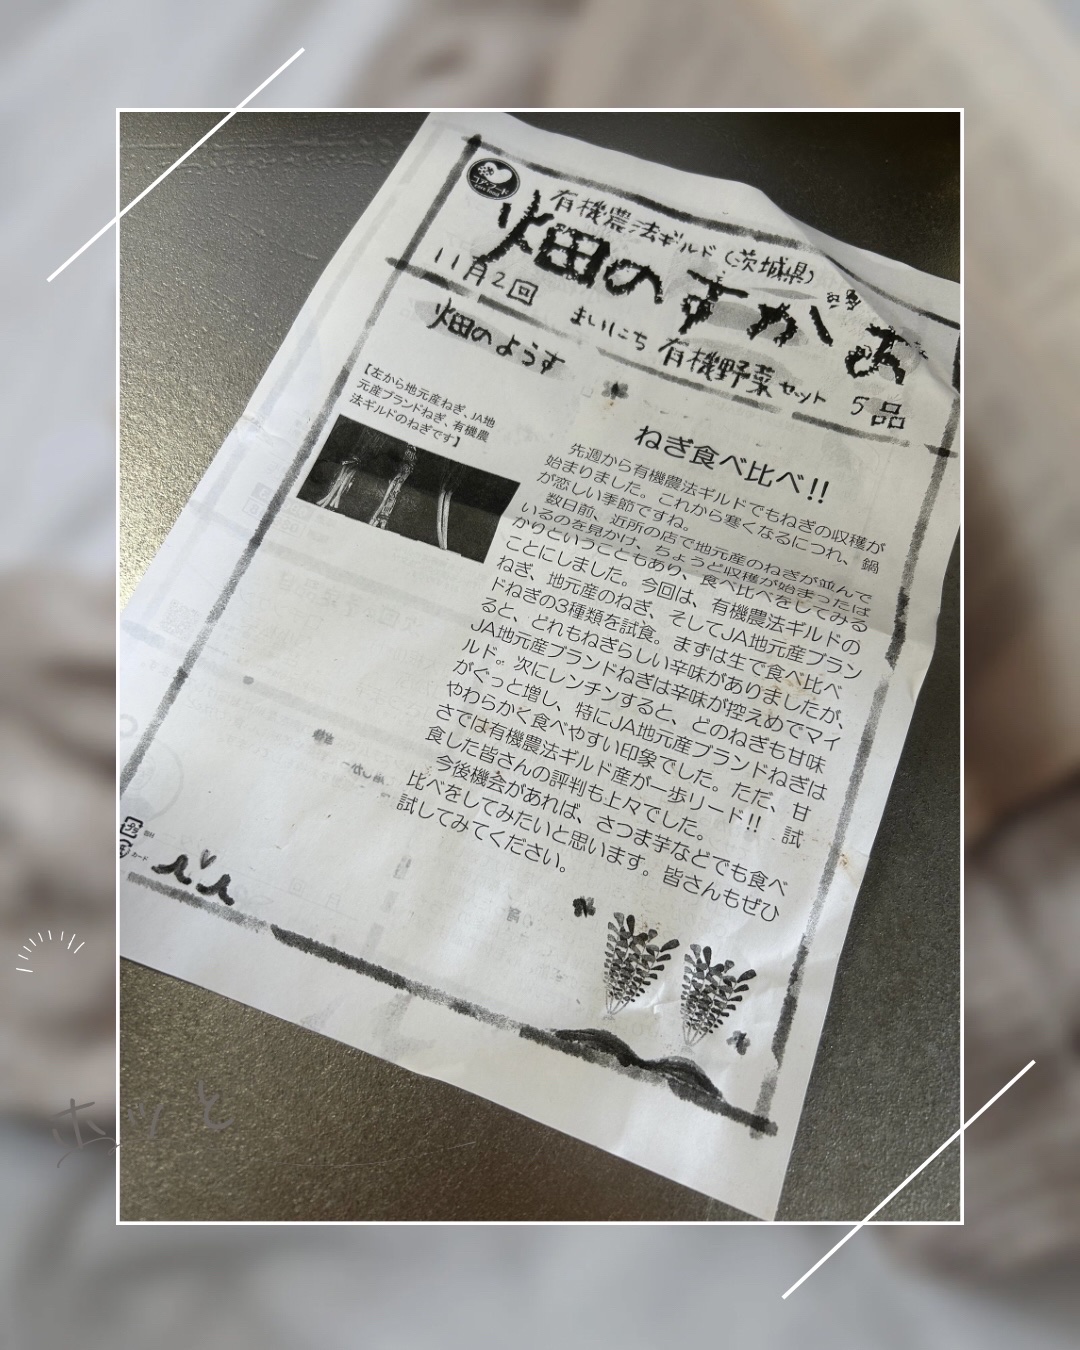 有機農法ギルド(茨城県)
畑のすがお
11月2回 まいにち 有機野菜セット 5品
畑のようす
【左から地元産ねぎ、JA地
元産ブランドねぎ、有機農
法ギルドのねぎです】
ねぎ食べ比べ!!
先週から有機農法ギルドでもねぎの収穫が
始まりました。これから寒くなるにつれ、鍋
が恋しい季節ですね。
数日前、近所の店で地元産のねぎが並んで
いるのを見かけ、ちょうど収穫が始まったば
かりということもあり、食べ比べをしてみる
ことにしました。今回は、有機農法ギルドの
ねぎ、地元産のねぎ、そしてJA地元産ブラン
ドねぎの3種類を試食。まずは生で食べ比べ
ると、どれもねぎらしい辛味がありましたが、
JA地元産ブランドねぎは辛味が控えめでマイ
ルド。次にレンチンすると、どのねぎも甘味
がぐっと増し、特にJA地元産ブランドねぎは
やわらかく食べやすい印象でした。ただ、甘
さでは有機農法ギルド産が一歩リード!! 試
食した皆さんの評判も上々でした。
今後機会があれば、さつま芋などでも食べ
比べをしてみたいと思います。皆さんもぜひ
試してみてください。
ホッと